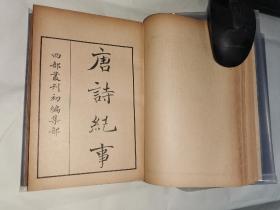 唐詩紀事
四部叢刊初編集部